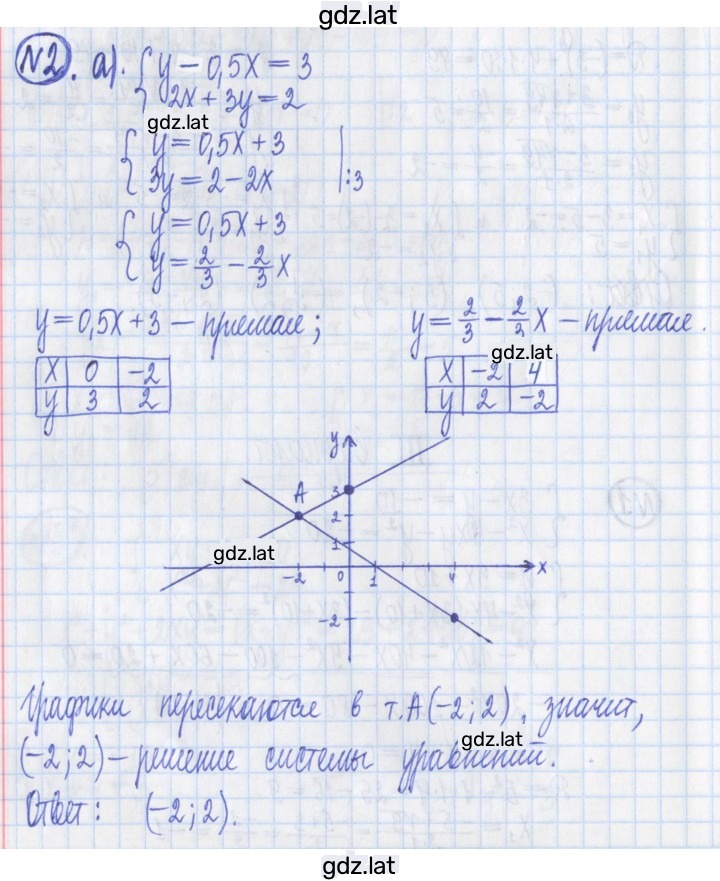 gdz.lat
N2. а). { y − 0,5x = 3
2x + 3y = 2
gdz.lat
{ y = 0,5x + 3
3y = 2 − 2x | :3
{ y = 0,5x + 3
y = 2/3 − 2/3 x
y = 0,5x + 3 — прямая; y = 2/3 − 2/3 x — прямая.
gdz.lat
x 0 −2 x −2 4
y 3 2 y 2 −2
y
A 3
2
1
gdz.lat
−2 0 1 4 x
−2
Графики пересекаются в т. А (−2; 2), значит,
gdz.lat
(−2; 2) — решение системы уравнений.
Ответ: (−2; 2).
gdz.lat